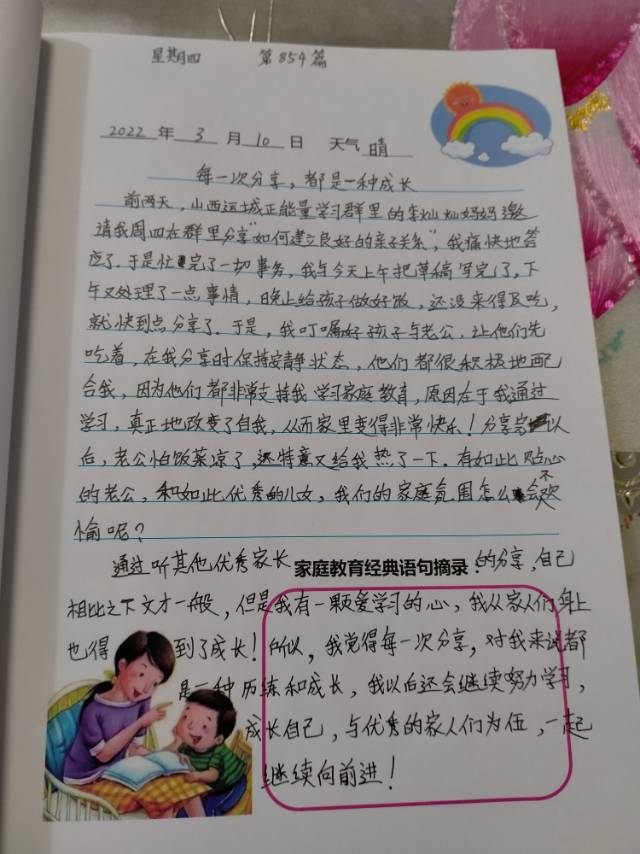 星期四 第854篇
2022年3月10日 天气晴
每一次分享，都是一种成长
前两天，山西运城正能量学习群里的李灿灿妈妈邀
请我周四在群里分享"如何建立良好的亲子关系"，我痛快地答
应了。于是忙完了一切事务，我与今天上午把草稿写完了，下
午又处理了一点事情，晚上给孩子做好饭，还没来得及吃，
就快到点分享了。于是，我叮嘱好孩子与老公，让他们先
吃着，在我分享时保持安静状态，他们都很积极地配
合我，因为他们都非常支持我学习家庭教育，原因在于我通过
学习，真正地改变了自我，从而家里变得非常快乐！分享完以
后，老公怕饭菜凉了，还特意又给我热了一下。有如此贴心
的老公，和如此优秀的儿女，我们的家庭氛围怎么会不欢
愉呢？
通过听其他优秀家长的分享，自己
家庭教育经典语句摘录：
相比之下文才一般，但是我有一颗爱学习的心，我从家人们身上
也得到了成长！所以，我觉得每一次分享，对我来说都
是一种历练和成长，我以后还会继续努力学习，
成长自己，与优秀的家人们为伍，一起
继续向前进！